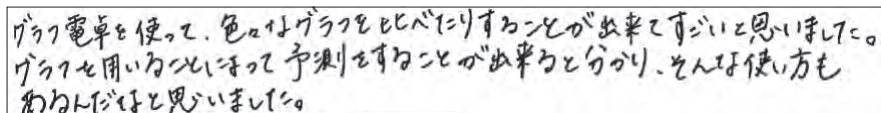 グラフ電卓を使って、色々なグラフを比べたりすることが出来てすごいと思いました。
グラフを用いることによって予測をすることが出来ると分かり、そんな使い方も
あるんだなと思いました。